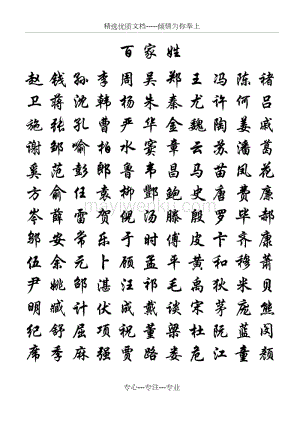 精选优质文档-----倾情为你奉上
百家姓
赵钱孙李周吴郑王冯陈褚
卫蒋沈韩杨朱秦尤许何吕
施张孔曹严华金魏陶姜戚
谢邹喻柏水窦章云苏潘葛
奚范彭郎鲁韦昌马苗凤花
方俞任袁柳酆鲍史唐费廉
岑薛雷贺倪汤滕殷罗毕郝
邬安常乐于时傅皮卞齐康
伍余元卜顾孟平黄和穆萧
尹姚邵湛汪祁毛禹狄米贝
明臧计伏成戴谈宋茅庞熊
纪舒屈项祝董梁杜阮蓝闵
席季麻强贾路娄危江童颜
专心---专注---专业